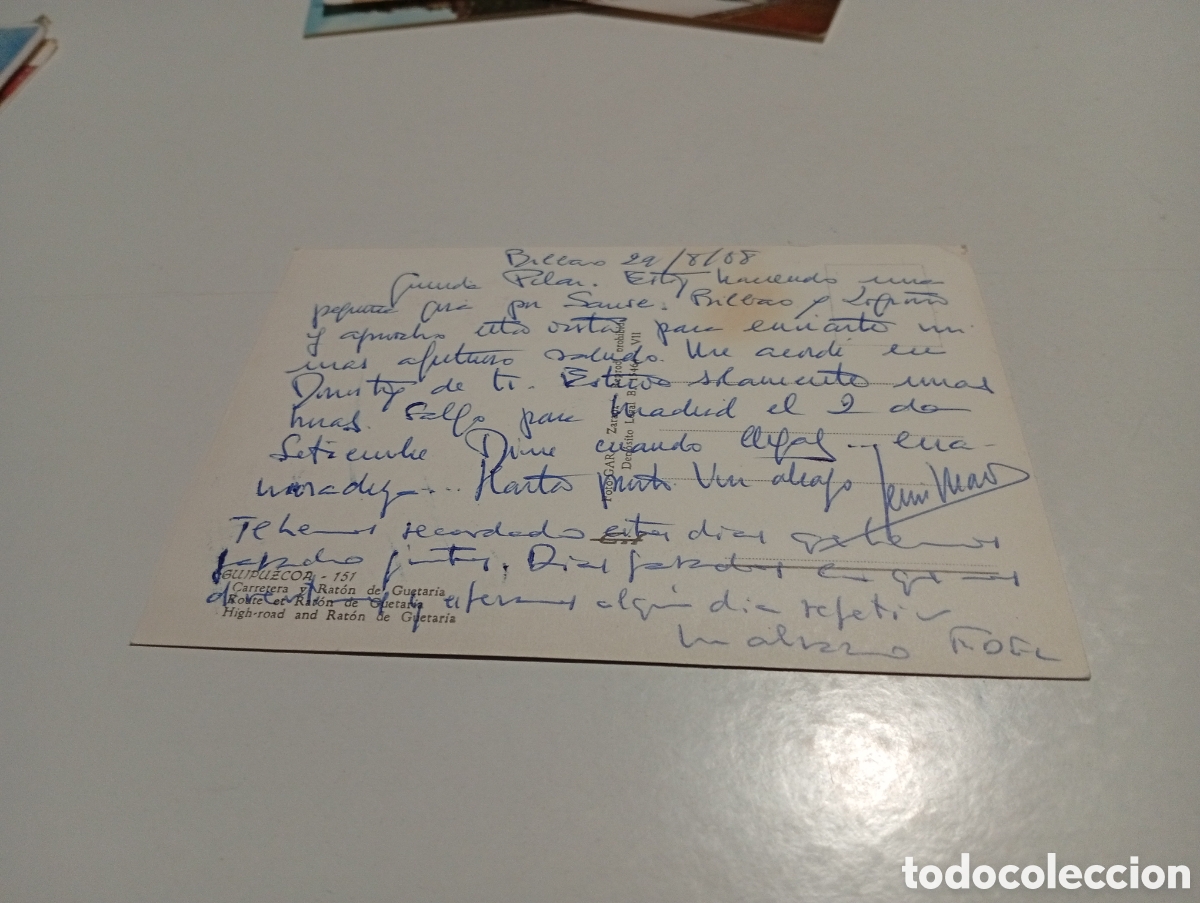 Bilbao 29/8/68
Querida Pilar. Estoy haciendo una
pequeña gira por Bilbao y Logroño
y aprovecho esta visita para enviarte un
mas afectuoso saludo. Me acordé en
de ti. Estuve solamente unas
horas. Salgo para Madrid el 2 de
Setiembre Dime cuando llegas... ena-
Hasta pronto. Un abrazo
Te hemos recordado estos dias que hemos
pasado juntos. Dias pasados en que nos
y esperamos algún dia repetir
Un abrazo
GUIPUZCOA - 151
Carretera y Ratón de Guetaria
Route et Ratón de Guetaria
High-road and Ratón de Guetaria
Foto GAR
Depósito Legal B. VII
todocoleccion